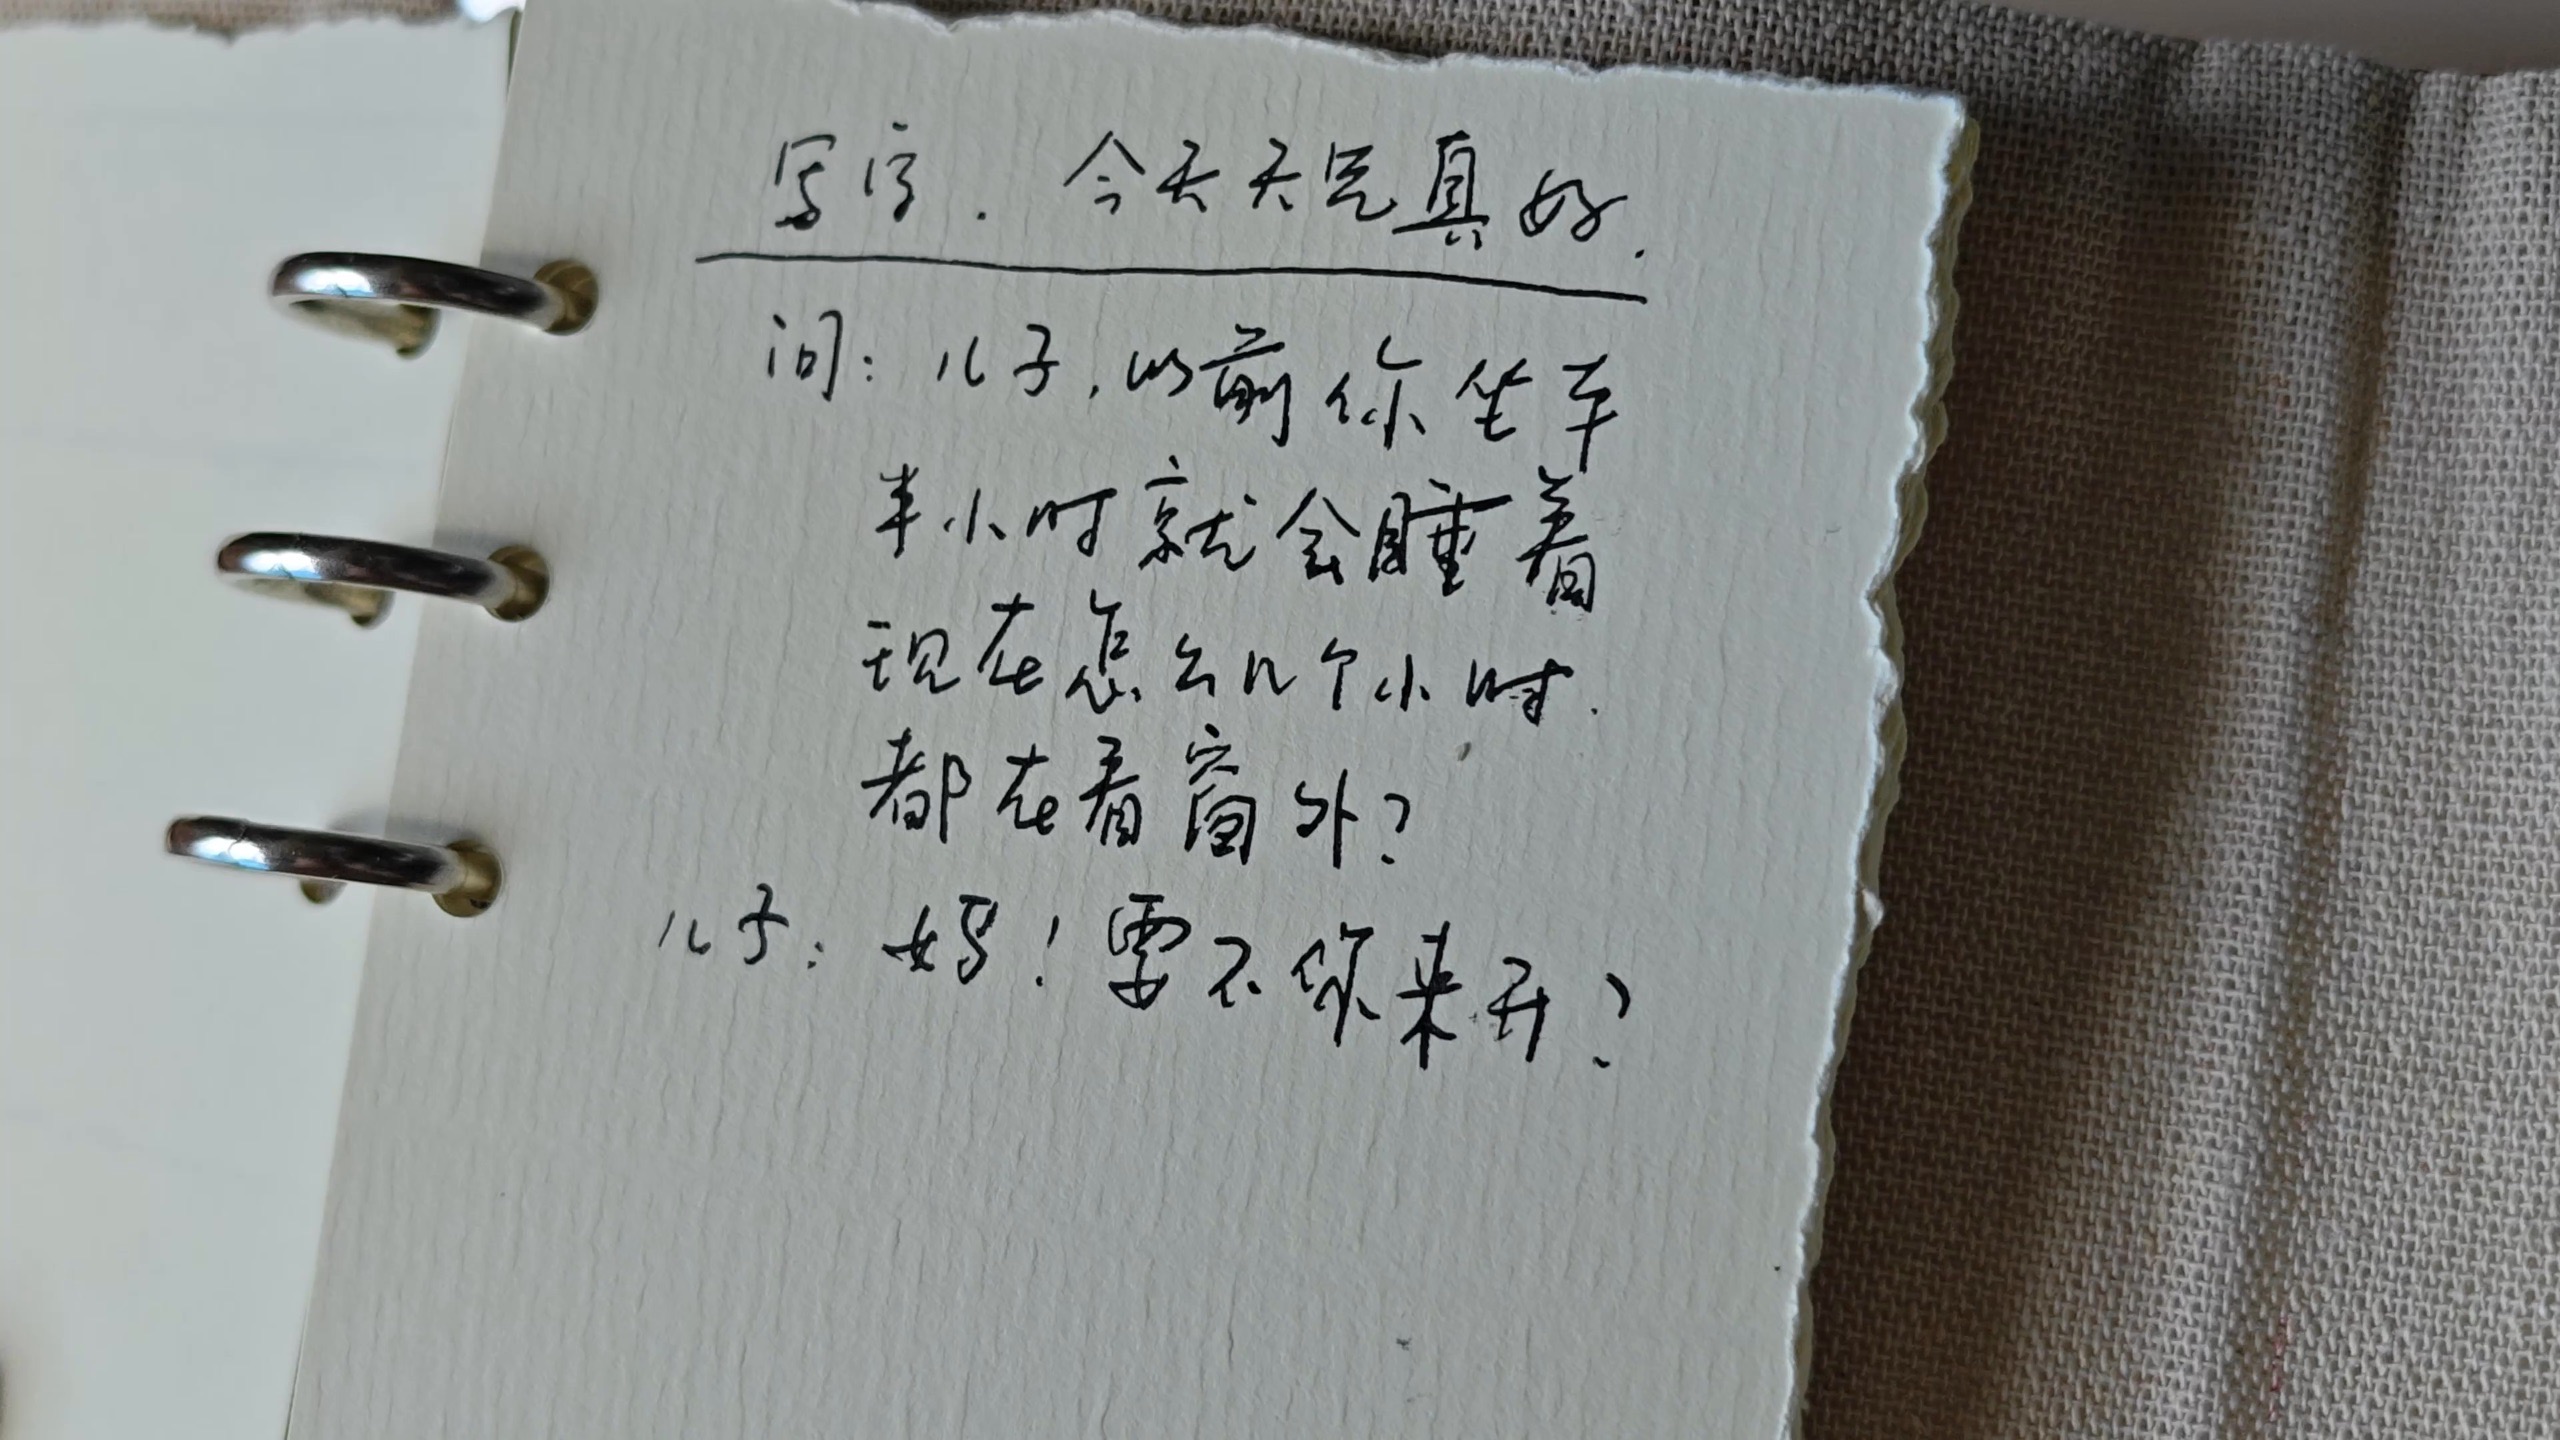 写字.今天天气真好.
问:儿子,以前你坐车
半小时就会睡着
现在怎么几个小时.
都在看窗外?
儿子:妈!要不你来开?